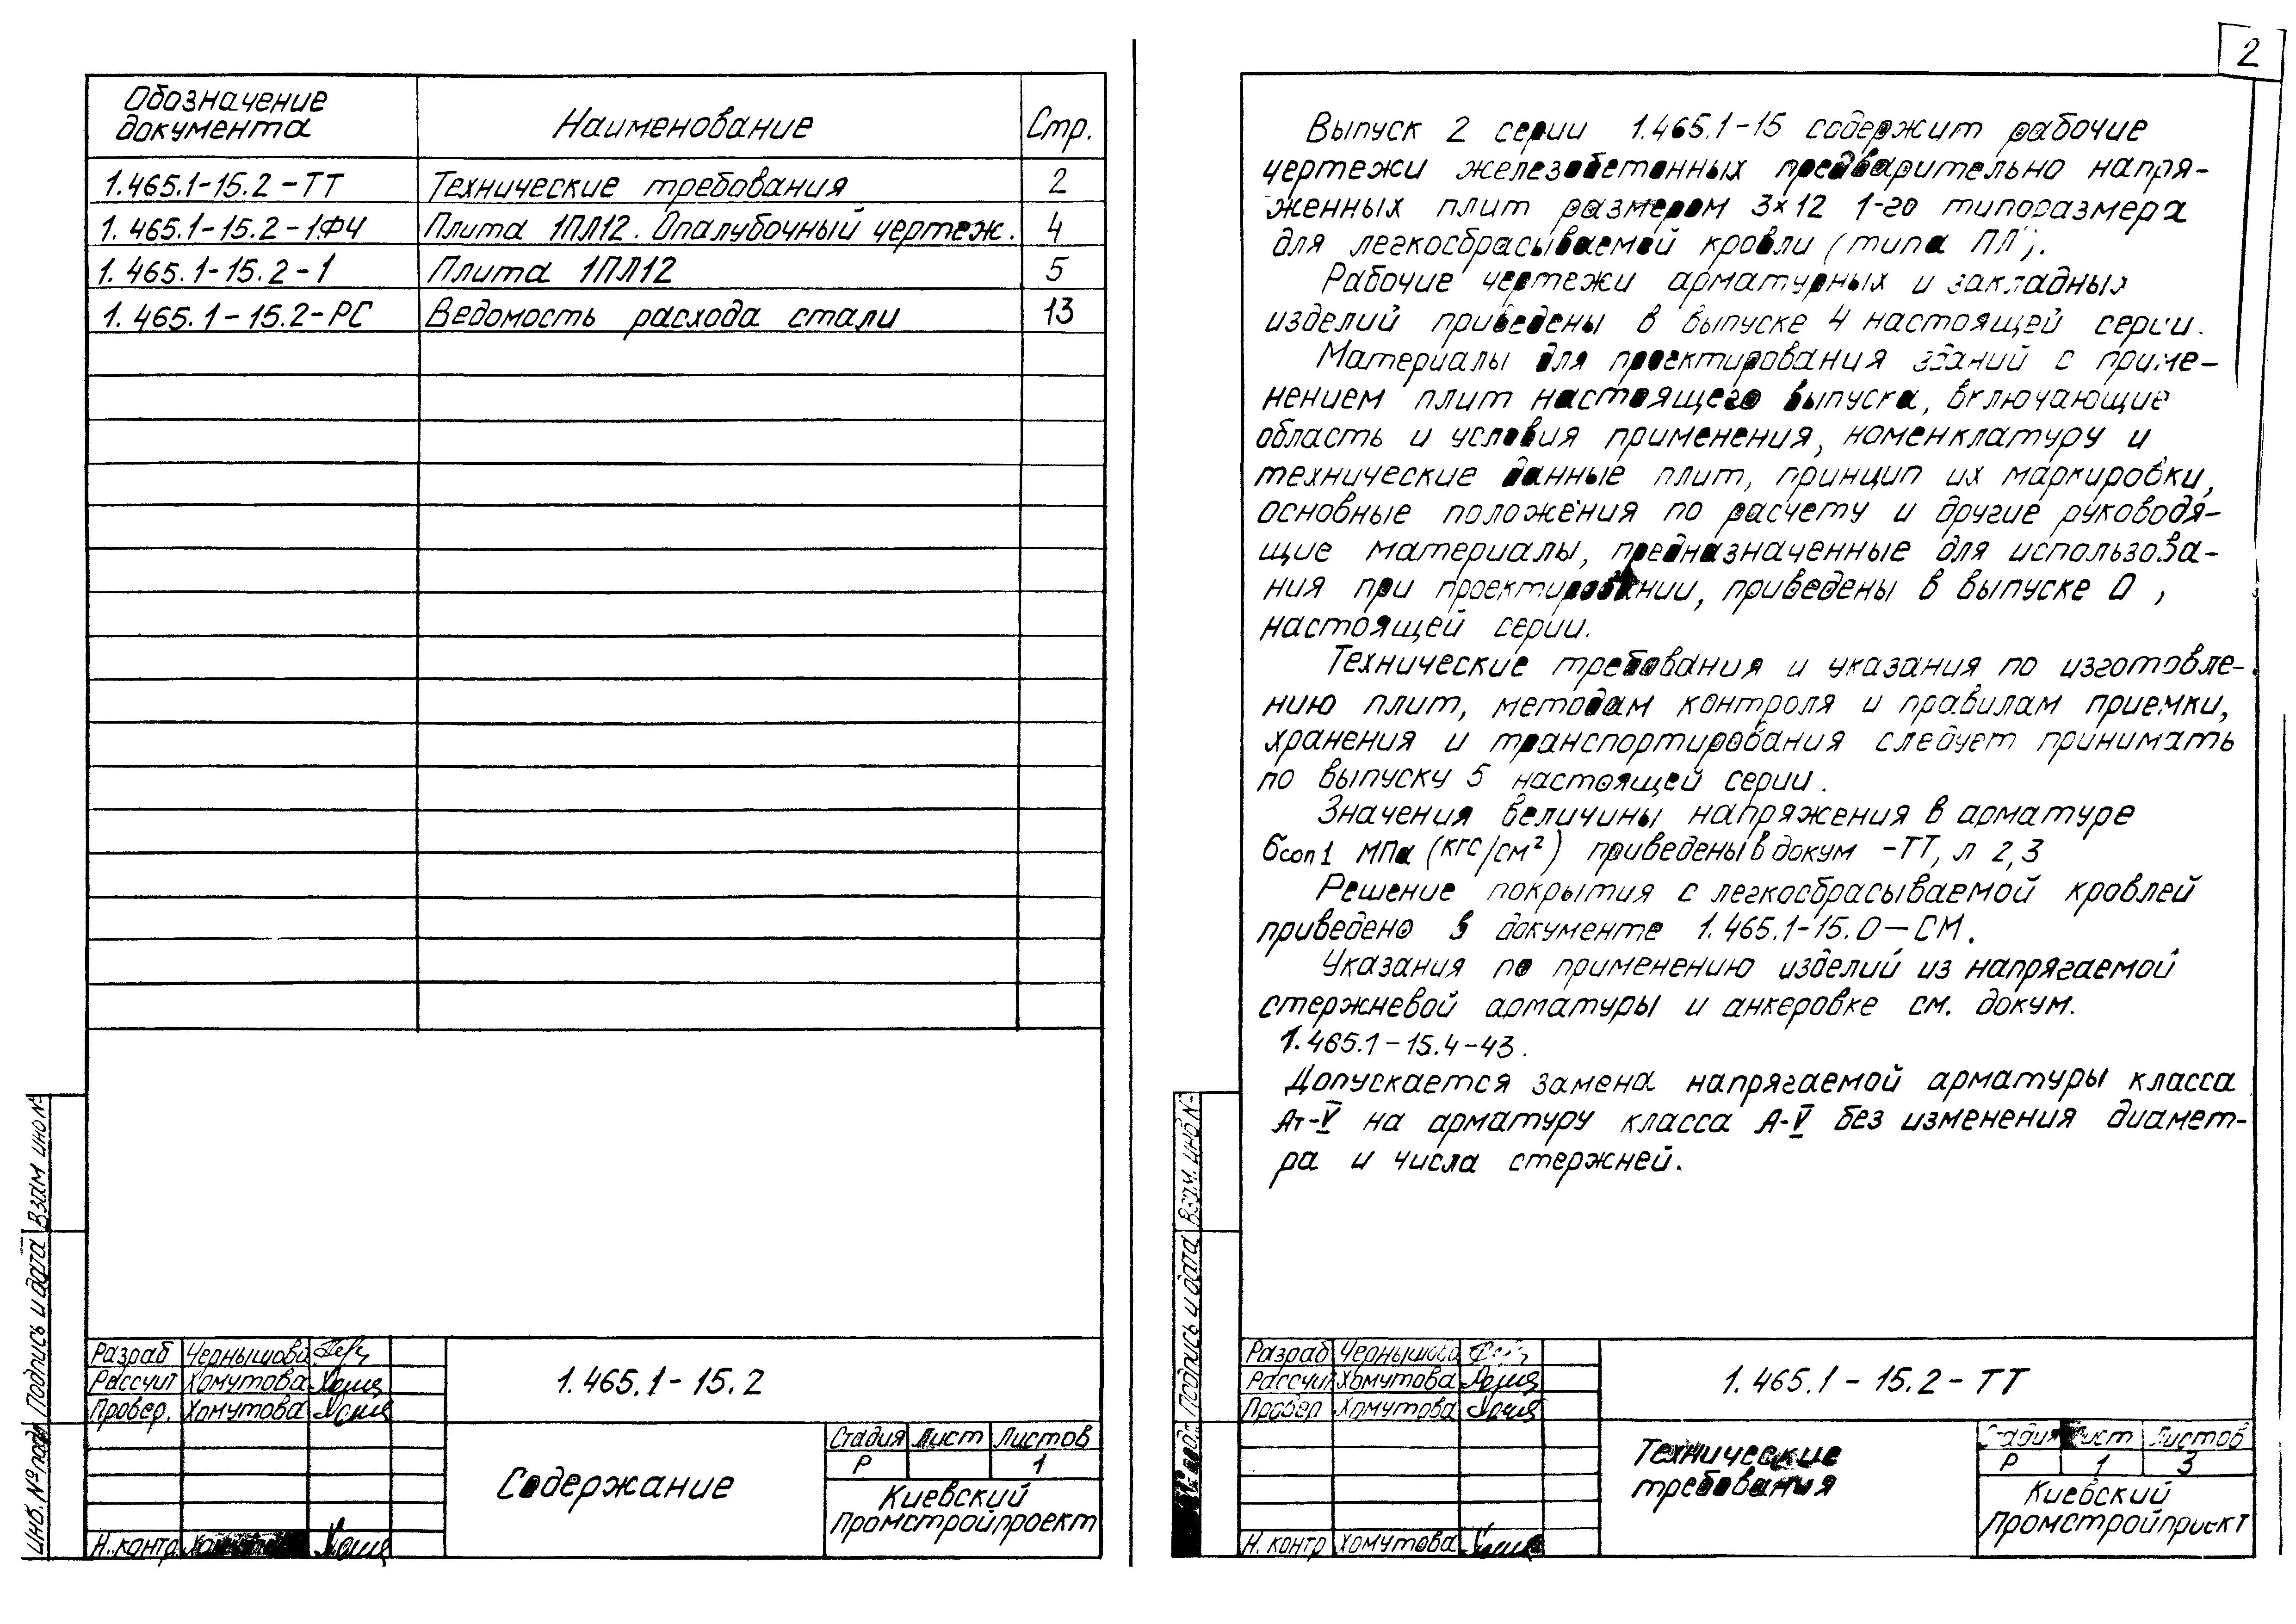 Обозначение
документа
Наименование
Стр.
1.465.1-15.2-ТТ Технические требования 2
1.465.1-15.2-1ФЧ Плита 1ПЛ12. Опалубочный чертеж. 4
1.465.1-15.2-1 Плита 1ПЛ12 5
1.465.1-15.2-РС Ведомость расхода стали 13
Взам инв №
Подпись и дата
Инв. № подл
Разраб Чернышова
Рассчит Хомутова
Провер. Хомутова
Н. контр
1.465.1-15.2
Содержание
Стадия Лист Листов
Р 1
Киевский
Промстройпроект
2
Выпуск 2 серии 1.465.1-15 содержит рабочие
чертежи железобетонных предварительно напря-
женных плит размером 3×12 1-го типоразмера
для легкосбрасываемой кровли (типа ПЛ).
Рабочие чертежи арматурных и закладных
изделий приведены в выпуске 4 настоящей серии.
Материалы для проектирования зданий с приме-
нением плит настоящего выпуска, включающие
область и условия применения, номенклатуру и
технические данные плит, принцип их маркировки,
основные положения по расчету и другие руководя-
щие материалы, предназначенные для использова-
ния при проектировании, приведены в выпуске 0,
настоящей серии.
Технические требования и указания по изготовле-
нию плит, методам контроля и правилам приемки,
хранения и транспортирования следует принимать
по выпуску 5 настоящей серии.
Значения величины напряжения в арматуре
бсоп1 МПа (кгс/см²) приведены в докум -ТТ, л 2,3
Решение покрытия с легкосбрасываемой кровлей
приведено в документе 1.465.1-15.0-СМ.
Указания по применению изделий из напрягаемой
стержневой арматуры и анкеровке см. докум.
1.465.1-15.4-43.
Допускается замена напрягаемой арматуры класса
Ат-V на арматуру класса А-V без изменения диамет-
ра и числа стержней.
Взам. инв №
Подпись и дата
Разраб Чернышова
Рассчит Хомутова
Провер Хомутова
Н. контр Хомутова
1.465.1-15.2-ТТ
Технические
требования
Стадия Лист Листов
Р 1 3
Киевский
Промстройпроект